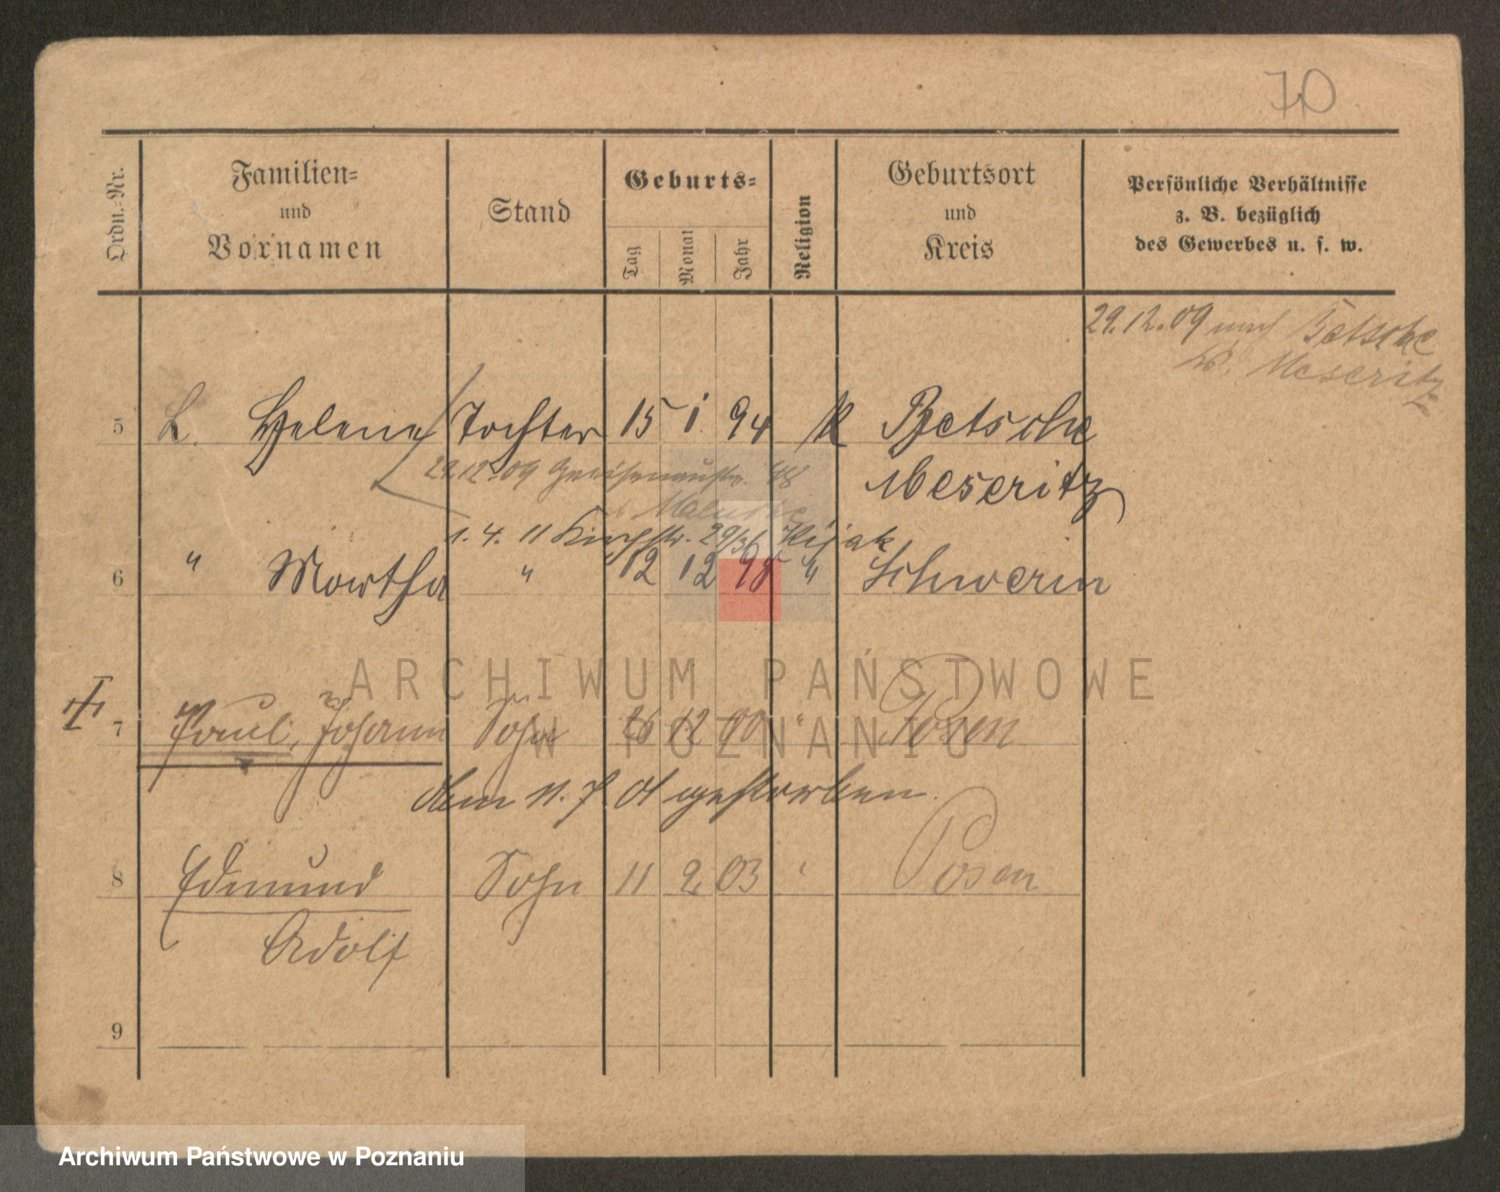 70
Ordn.-Nr.
Familien-
und
Vornamen
Stand
Geburts-
Tag
Monat
Jahr
Religion
Geburtsort
und
Kreis
Persönliche Verhältnisse
z. B. bezüglich
des Gewerbes u. s. w.
29.12.09 nach Betsche
Kr. Meseritz
5 L. Helene Tochter 15 1. 94 K Betsche
29.12.09 Gneisenaustr. 48
Meseritz
1. 4. 11 Kirchstr. 29/31
6 " Martha " 12 12 98 " Schwerin
ARCHIWUM PAŃSTWOWE
W POZNANIU
7 Paul, Johann Sohn 26 12 00 " Posen
Am 11. 7. 01 gestorben.
8 Edmund Sohn 11 2 03 " Posen
Adolf
9
Archiwum Państwowe w Poznaniu